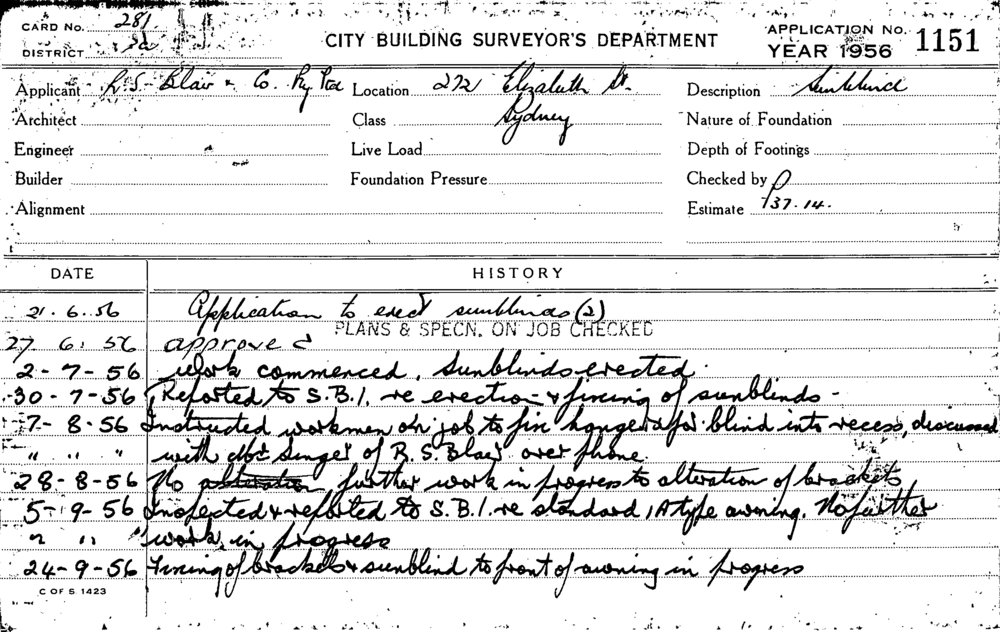 CARD No. 281
DISTRICT
CITY BUILDING SURVEYOR'S DEPARTMENT
APPLICATION No. 1151
YEAR 1956
Applicant R.S. Blair & Co. Pty Ltd Location 272 Elizabeth St. Description Sunblind
Architect Class Sydney Nature of Foundation
Engineer Live Load Depth of Footings
Builder Foundation Pressure Checked by
Alignment Estimate 137.14.
DATE HISTORY
21.6.56 Application to erect sunblinds (2)
PLANS & SPECN. ON JOB CHECKED
27 6. 56 approved
2-7-56 Work commenced. Sunblinds erected.
30-7-56 Reported to S.B.I. re erection & fixing of sunblinds -
7-8-56 Instructed workmen on job to fix hangers for blind into recess, discussed
" " " with Mr Singer of R.S. Blair over phone.
28-8-56 No alteration further work in progress to alteration of brackets
5-9-56 Inspected & reported to S.B.I. re standard, A type awning. No further
" " " work in progress
24-9-56 Fixing of brackets & sunblind to front of awning in progress
C OF S 1423